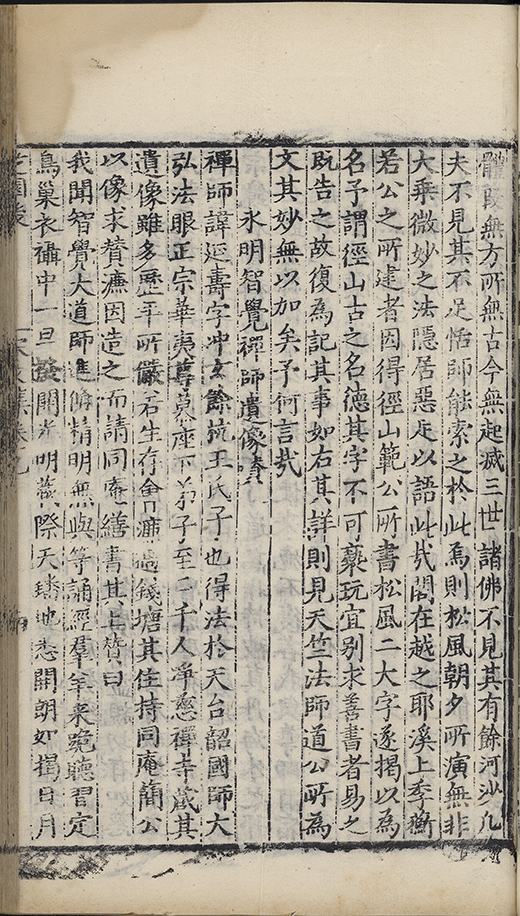 體段無方所無古今無起滅三世諸佛不見其有餘河沙凡
夫不見其不足恬師能索之於此焉則松風朝夕所演無非
大乗微妙之法隱居惡足以語此㦲閣在越之耶溪上季蘅
若公之所建者因得徑山範公所書松風二大字遂揭以為
名予謂徑山古之名德其字不可褻玩宜别求善書者易之
既告之故復為記其事如右其詳則見天竺法師道公所為
文其妙無以加矣予何言㦲
永明智覺禪師遺像賛
禪師諱延壽字冲玄餘杭王氏子也得法於天台韶國師大
弘法眼正宗華夷尊慕座下弟子至二千人凈慈禪寺蔵其
遺像雖多歷年所儼若生存會㢘過錢塘其住持同庵簡公
以像求賛㢘因造之而請同庵繕書其上賛曰
我聞智覺大道師進脩精明無與等誦經羣羊来跪聽習定
鳥巢衣襵中一旦發開光明蔵際天蟠地悉開朗如揭日月